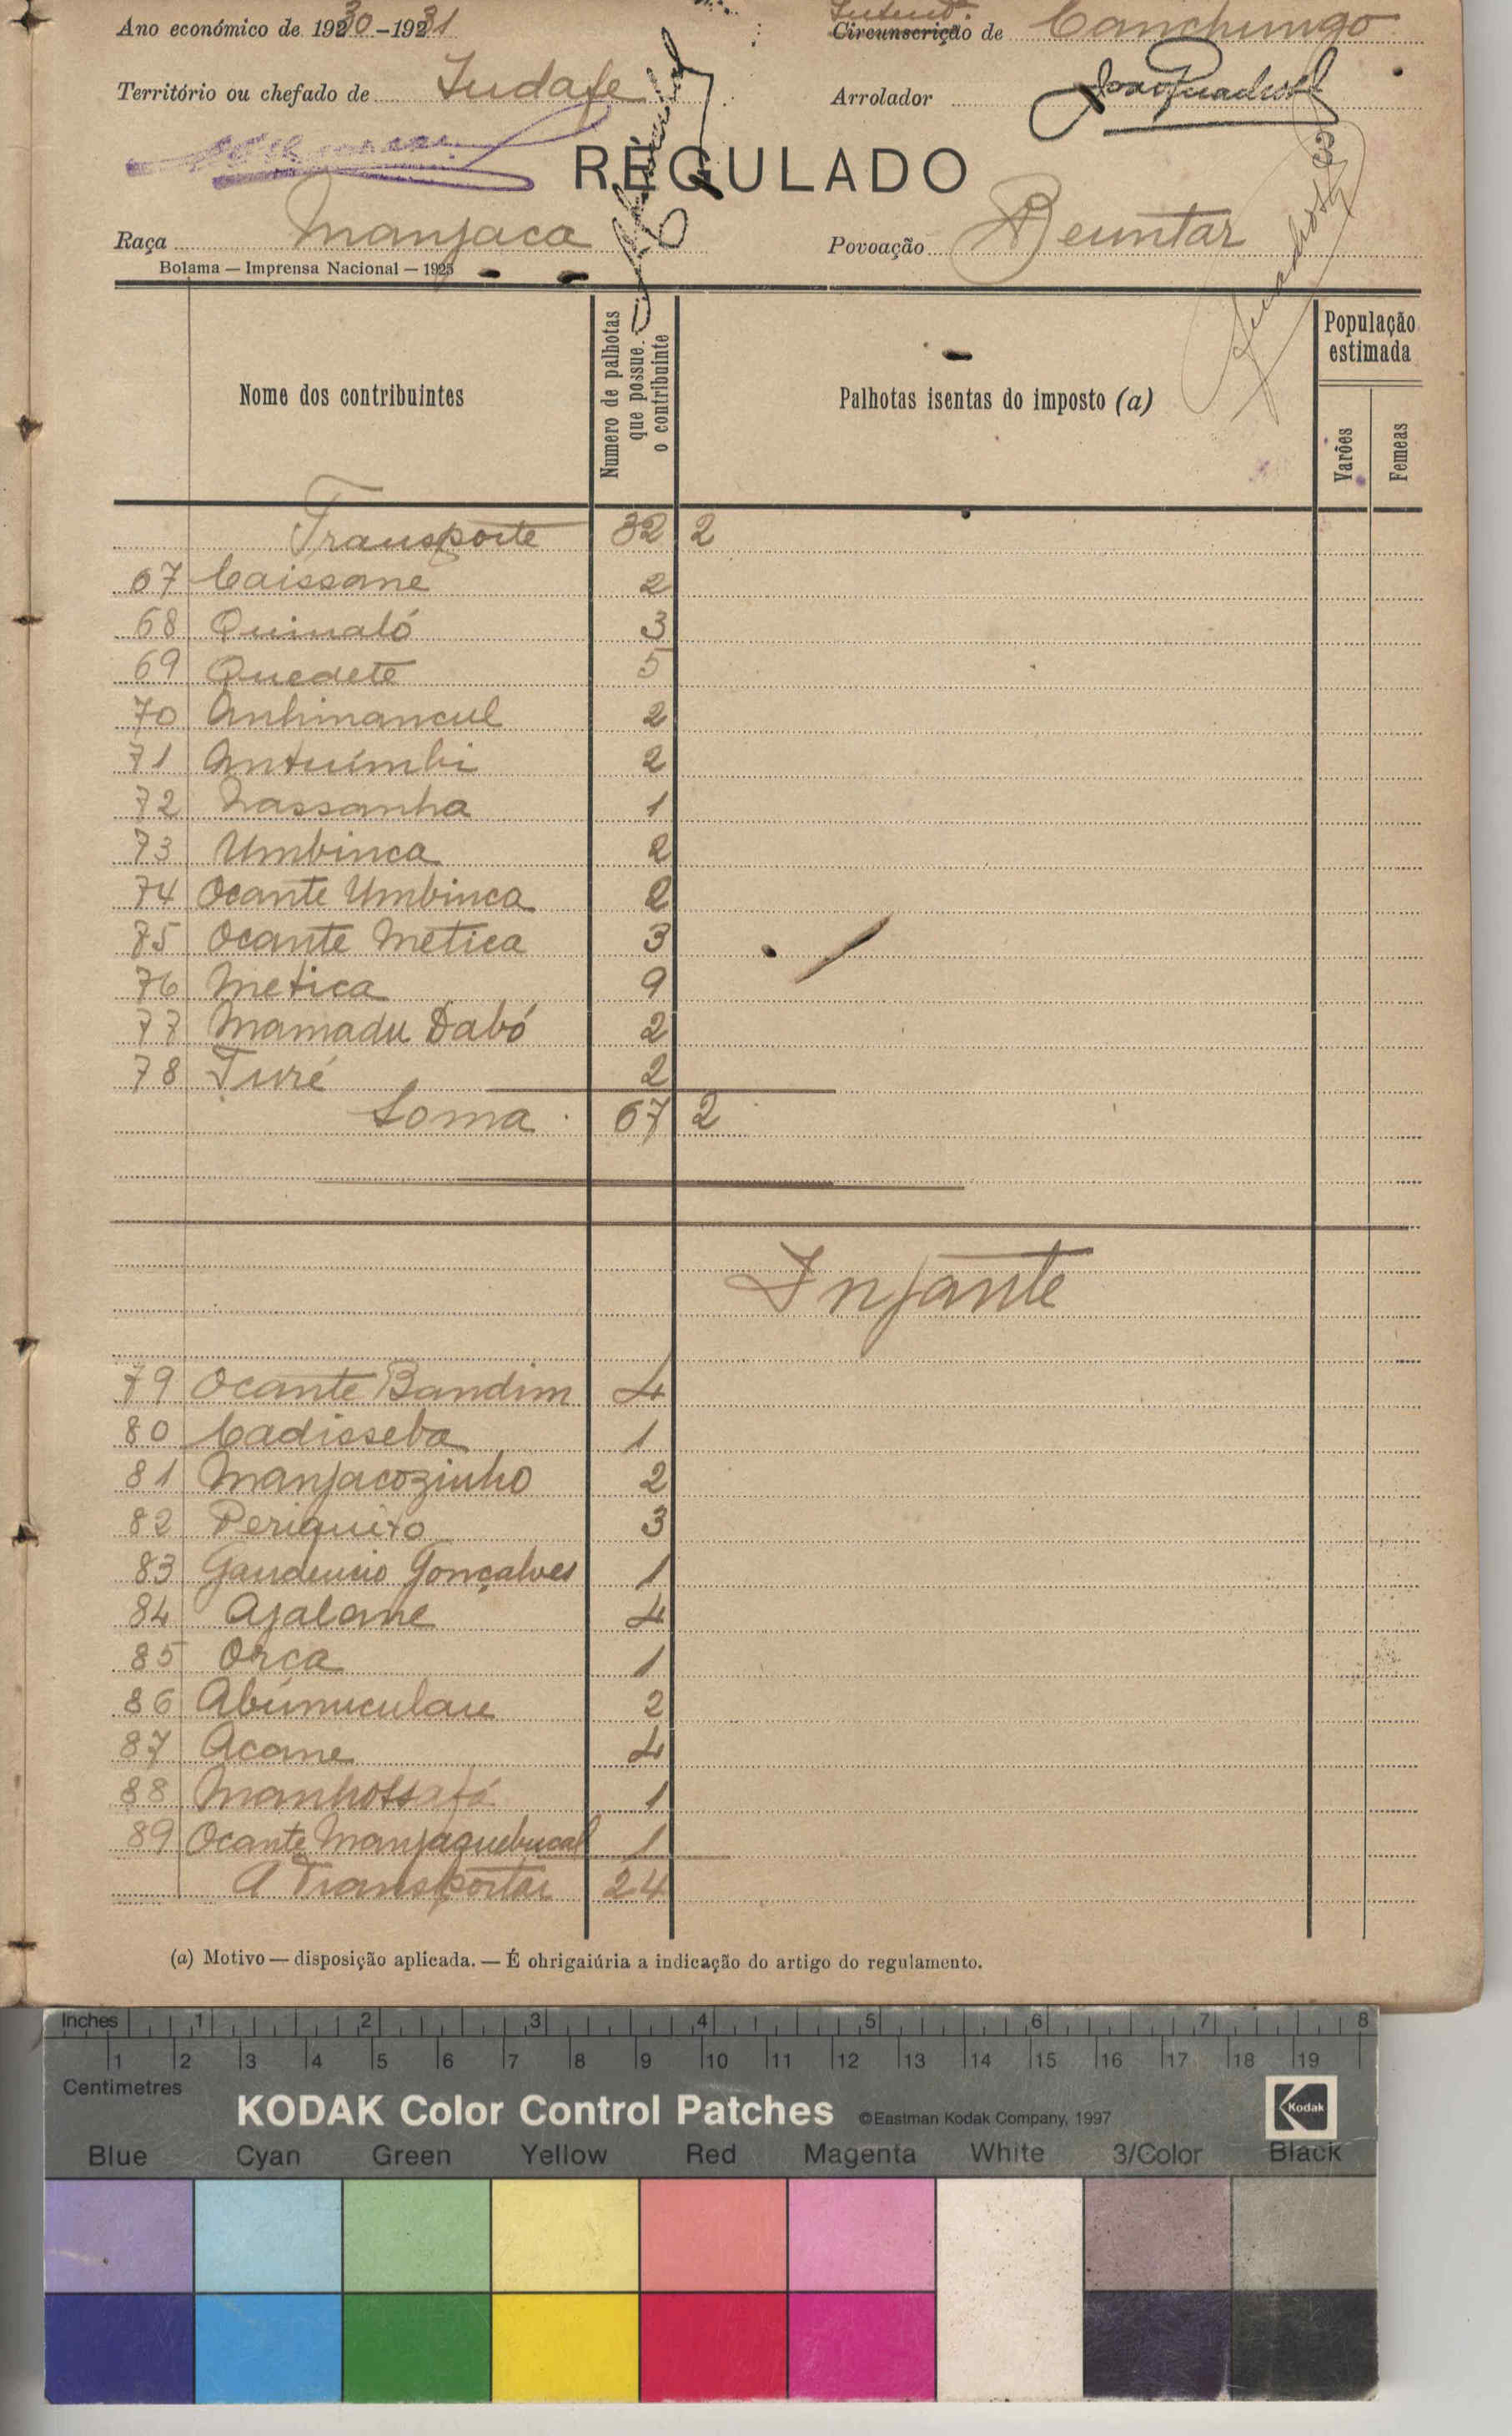 Ano económico de 1930-1931
Intend.ª
Circunscrição de Canchungo
Território ou chefado de Indafe
Arrolador
REGULADO
Raça Manjaca
Povoação Beuntar
Bolama — Imprensa Nacional — 1925
Nome dos contribuintes
Numero de palhotas que possue o contribuinte
Palhotas isentas do imposto (a)
População estimada
Varões
Femeas
Transporte 32 2
67 Caissane 2
68 Quinaló 3
69 Quedete 5
70 Anhinancul 2
71 Antuímbi 2
72 Nassanha 1
73 Umbinca 2
74 Ocante Umbinca 2
75 Ocante Metica 3
76 Metica 9
77 Mamadu Dabó 2
78 Turé 2
Soma 67 2
Infante
79 Ocante Bandim 4
80 Cadisseba 1
81 Manjacozinho 2
82 Periquito 3
83 Gaudencio Gonçalves 1
84 Ajalane 4
85 Orca 1
86 Abunuculau 2
87 Acane 4
88 Manhotsafá 1
89 Ocante Manjaquebucal 1
A Transportar 24
(a) Motivo — disposição aplicada. — É obrigaiúria a indicação do artigo do regulamento.
Inches 1 2 3 4 5 6 7 8
1 2 3 4 5 6 7 8 9 10 11 12 13 14 15 16 17 18 19
Centimetres
KODAK Color Control Patches ©Eastman Kodak Company, 1997 Kodak
Blue Cyan Green Yellow Red Magenta White 3/Color Black